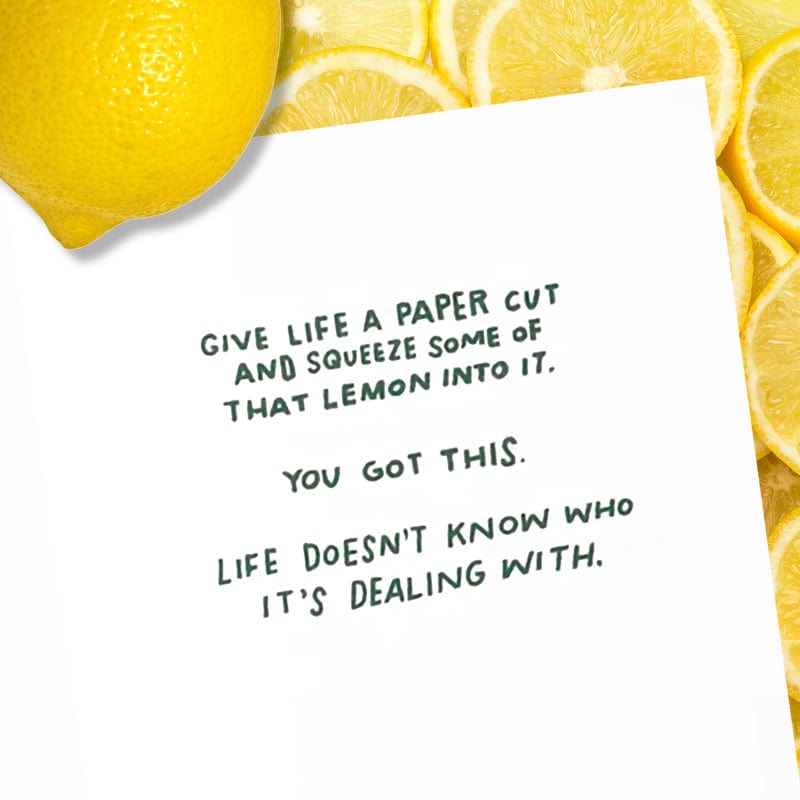 GIVE LIFE A PAPER CUT
AND SQUEEZE SOME OF
THAT LEMON INTO IT.
YOU GOT THIS.
LIFE DOESN'T KNOW WHO
IT'S DEALING WITH.